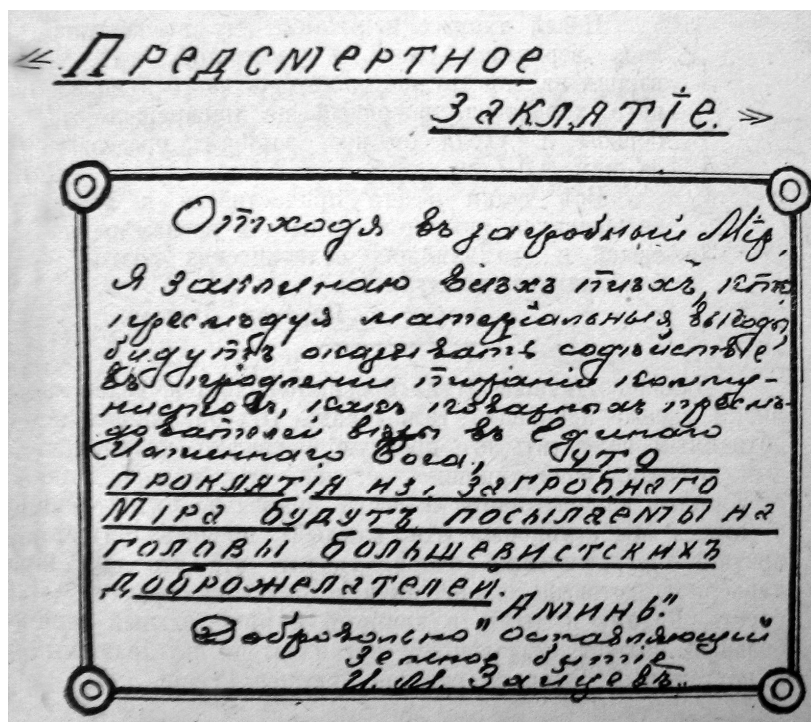 « Предсмертное
Заклятіе. »
Отходя въ загробный Мір,
я заклинаю всѣхъ тѣхъ, кто
преслѣдуя матеріальныя выгоды,
будутъ оказывать содѣйствіе
въ продленіи тираніи комму-
нистовъ, какъ коварныхъ преслѣ-
дователей вѣры въ Единаго
Истиннаго Бога, что
проклятія из загробнаго
Міра будутъ посылаемы на
головы большевистскихъ
доброжелателей.
Аминь".
Добровольно "оставляющий
земное бытіе
И. М. Зайцевъ.